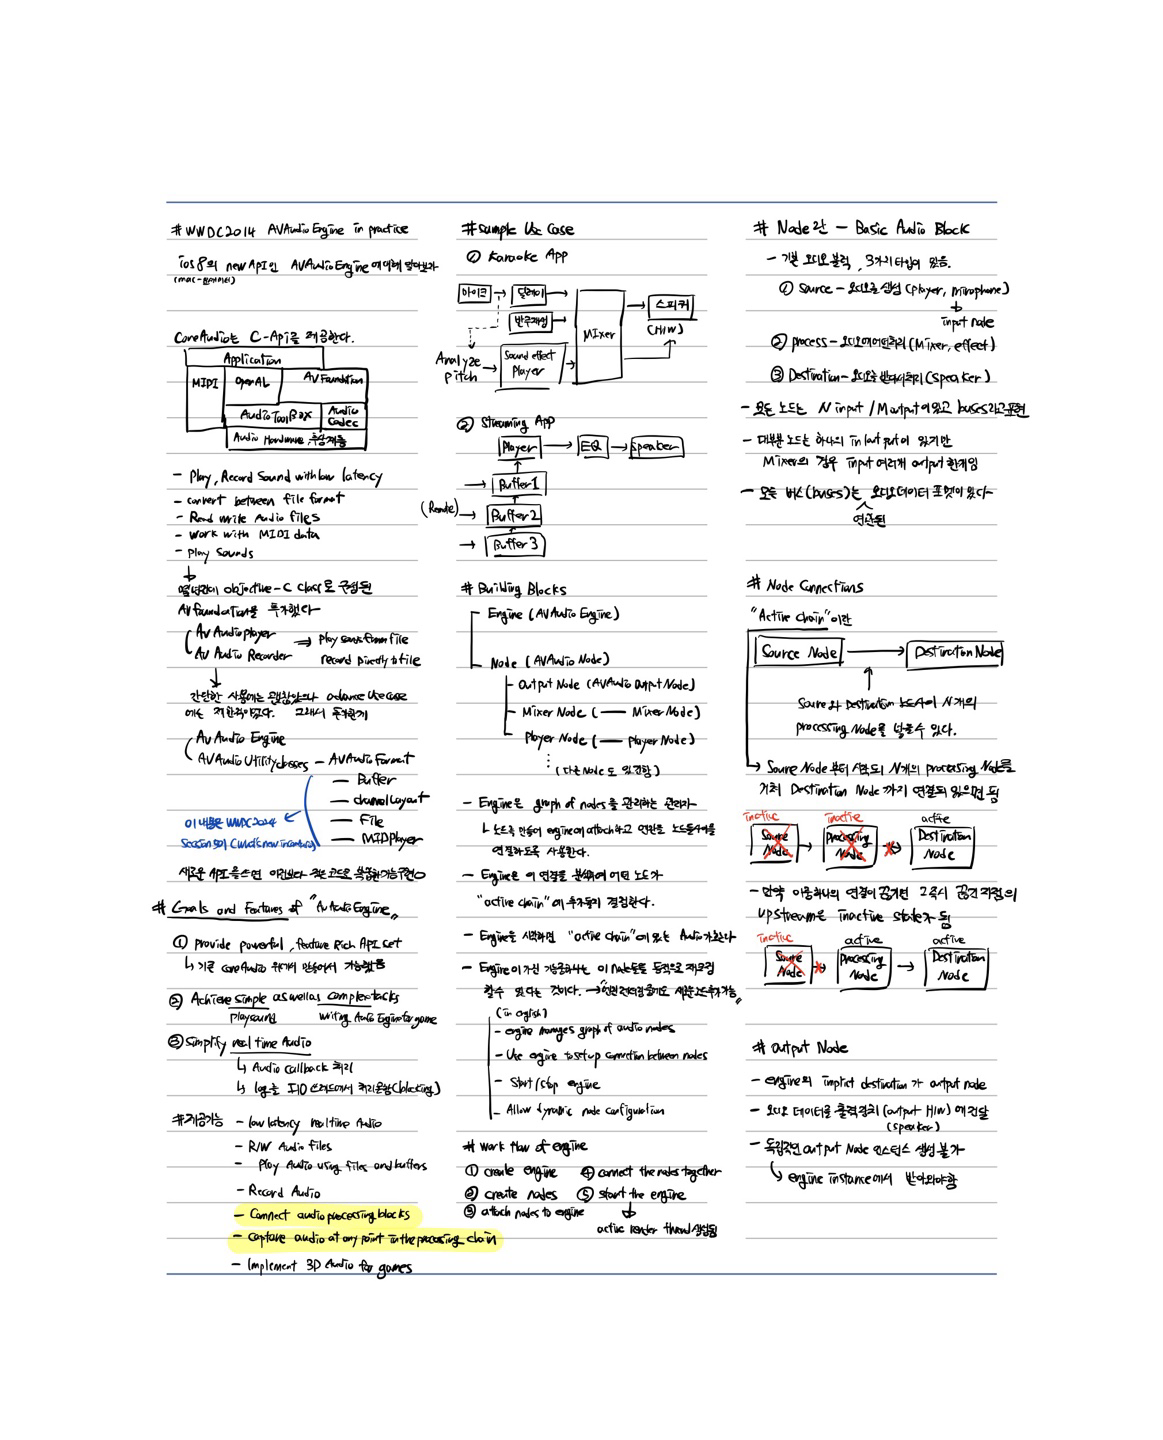 # WWDC2014 AVAudio Engine in practice
ios 8의 new API인 AVAudioEngine에 대해 알아보자
CoreAudio는 C-Api를 제공한다.
Application
MIDI
OpenAL
AV Foundation
Audio ToolBox
Audio Codec
Audio Hardware 추상계층
- Play, Record Sound with low latency
- convert between file format
- Read write Audio files
- work with MIDI data
- play Sounds
objective-C class로 구성된
AVfoundation을 투자했다
AV Audio player
AV Audio Recorder
⇒ Play sounds from file
record Directly to file
간단한 사용에는 괜찮았으나 advance use case
에는 제한적이었다. 그래서
AV Audio Engine
AVAudio Utility classes - AVAudio Format
- Buffer
- channel Layout
- File
- MIDIplayer
이 내용은 WWDC 2014
Session 501 (what's new in coreaudio)
새로운 API를 쓰면 이전보다 적은 코드로 복잡한 기능 구현 O
# Goals and Features of "AVAudioEngine"
① provide powerful, feature Rich API set
↳ 기존 coreAudio 위에서 만들어서 가능했음
② Achieve simple as well as complex tacks
playsound
writing Audio Engine for game
③ Simplify real time Audio
↳ Audio callback 처리
↳ log는 I/O 쓰레드에서 처리 못함 (blocking)
# 제공기능
- low latency real time Audio
- R/W Audio files
- Play Audio using files and buffers
- Record Audio
- Connect audio processing blocks
- Capture audio at any point in the processing chain
- Implement 3D Audio for games
# Sample Use Case
① Karaoke App
마이크
딜레이
반주재생
Mixer
스피커
(H/W)
Analyze pitch
Sound effect Player
② Streaming App
Player
EQ
speaker
Buffer 1
Buffer 2
Buffer 3
# Building Blocks
Engine (AVAudio Engine)
Node (AVAudio Node)
Output Node (AVAudio Output Node)
Mixer Node ( — Mixer Node)
Player Node ( — player Node)
(다른 Node도 있긴함)
- Engine은 graph of nodes를 관리하는 관리자
↳ 노드를 만들어 engine에 attach하고 연관된 노드들사이를
연결하도록 사용한다.
- Engine은 이 연결을 분석하여 어떤 노드가
"active chain"에 추가될지 결정한다.
- Engine을 시작하면 "active chain"에 있는 Audio가 흐른다
- Engine이 가진 기능중하나는 이 Node들을 동적으로 재구성
할 수 있다는 것이다. → "언제 렌더링 중에도 새로운 노드추가가능"
(in eglish)
- engine manages graph of audio nodes
- Use engine to set up connection between nodes
- Start/stop engine
- Allow dynamic node configuration
# work flow of engine
① create engine
② create nodes
③ attach nodes to engine
④ connect the nodes together
⑤ start the engine
active render thread 생성됨
# Node란 - Basic Audio Block
- 기본 오디오 블럭, 3가지 타입이 있음.
① Source - 오디오를 생성 (player, mirophone)
input node
② process - 오디오에 어떤처리 (Mixer, effect)
③ Destination - 오디오를 받아서 처리 (speaker)
- 모든 노드는 N input / M output이 있고 buses라고 표현
- 대부분 노드는 하나의 in/out put이 있지만
Mixer의 경우 input 여러개 output 한개임
- 모든 버스(buses)는 오디오데이터 포맷이 있다
연관된
# Node Connections
"Active chain"이란
Source Node
Destination Node
Source와 Destination 노드사이 N개의
processing Node를 넣을수 있다.
→ Source Node부터 시작되 N개의 processing Node를
거쳐 Destination Node까지 연결되 있으면 됨
inactive
Source Node
inactive
Processing Node
active
Destination Node
- 만약 이중하나의 연결이 끊기면 그즉시 끊긴 지점의
upstream은 inactive state가 됨
inactive
Source Node
active
Processing Node
active
Destination Node
# Output Node
- engine의 implict destination가 output node
- 오디오 데이터를 출력장치 (output H/W)에 전달
(speaker)
- 독립적인 output Node 인스턴스 생성 불가
↳ engine instance에서 받아와야함